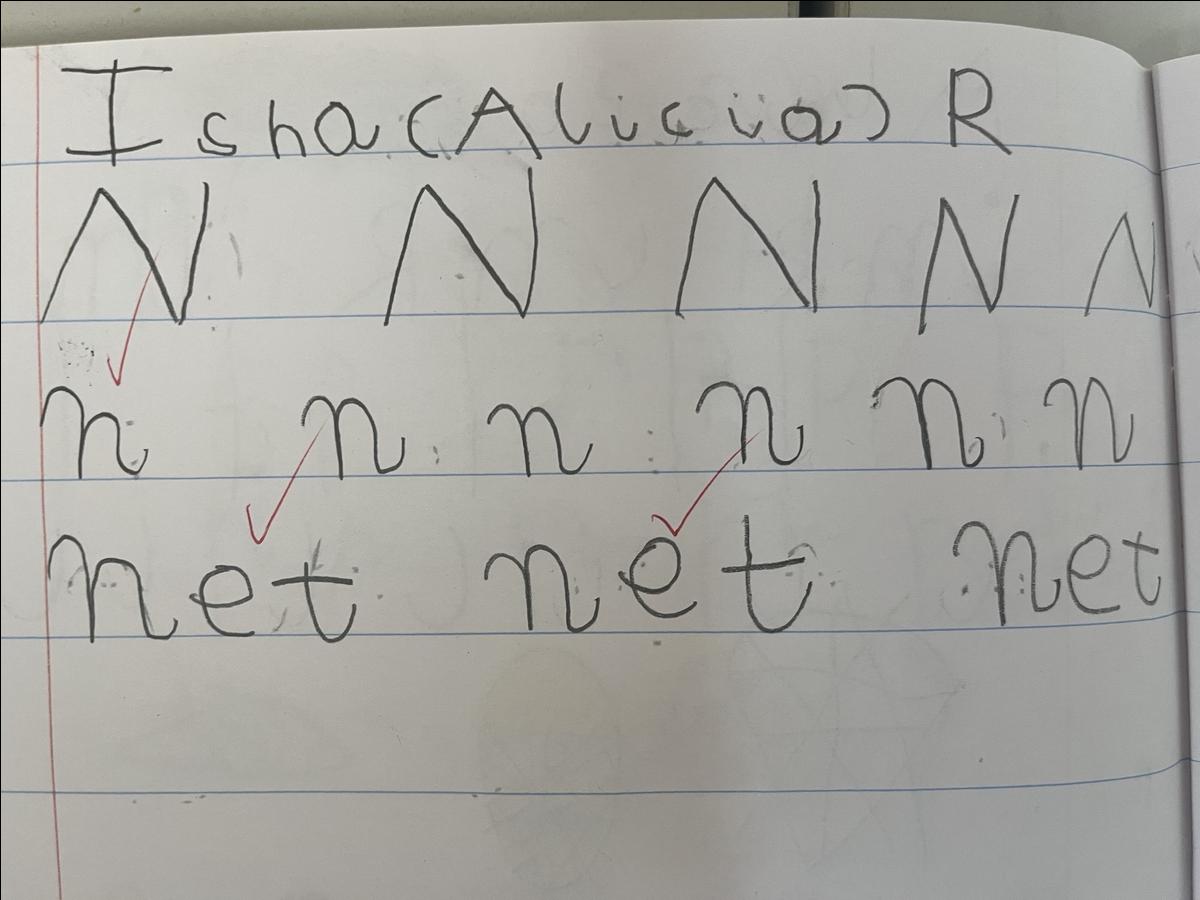 Isha (Alicia) R
N N N N N
n n n n n n
net net net